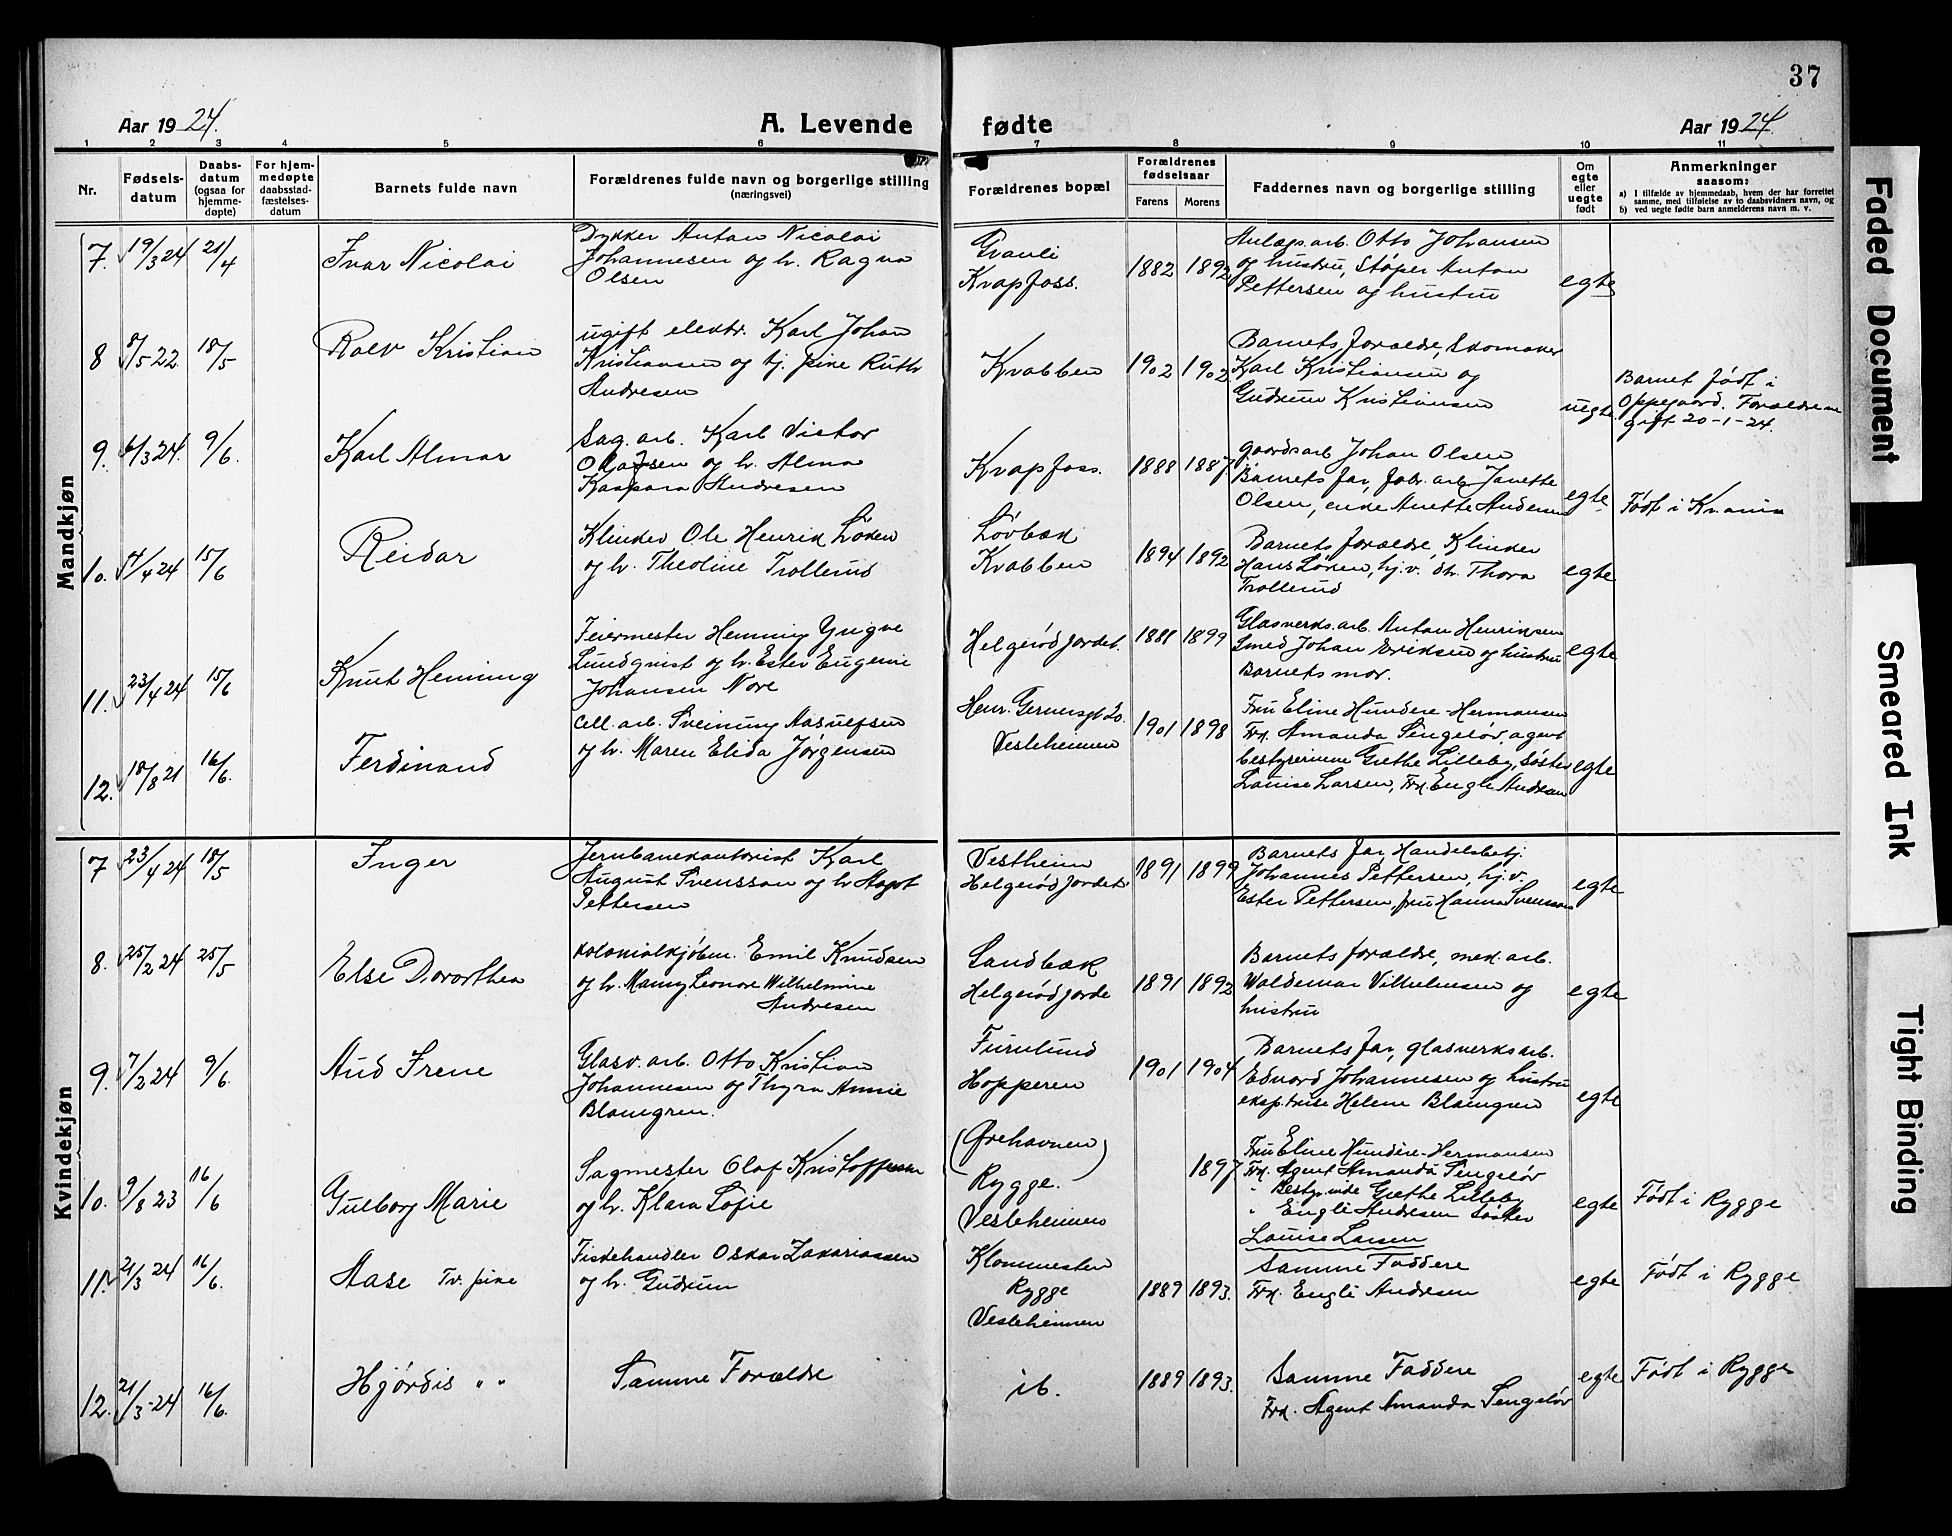 37
Aar 1924.
A. Levende fødte
Aar 1924.
1 2 3 4 5 6 7 8 9 10 11
Nr.
Fødsels-
datum
Daabs-
datum
(ogsaa for
hjemme-
døpte)
For hjem-
medøpte
daabsstad-
fæstelses-
datum
Barnets fulde navn
Forældrenes fulde navn og borgerlige stilling
(næringsvei)
Forældrenes bopæl
Forældrenes
fødselsaar
Farens
Morens
Faddernes navn og borgerlige stilling
Om
egte
eller
uegte
født
Anmerkninger
saasom:
a) I tilfælde av hjemmedaab, hvem der har forrettet
samme, med tilføielse av to daabsvidners navn, og
b) ved uegte fødte barn anmelderens navn m. v.
Mandkjøn
7. 19/3 24 21/4
Ivar Nicolai
Dykker Anton Nicolai
Johannesen og h. Ragna
Olsen
Granli
Krapfoss.
1882 1892
Anlægsarb. Otto Johansen
og hustru, Støper Anton
Pettersen og hustru
egte
8 8/5 22 18/5
Rolv Kristian
ugift elektr. Karl Johan
Kristiansen og tj. pike Ruth
Andresen
Krabben
1902 1902
Barnets forældre, Skomaker
Karl Kristiansen og
Gudrun Kristiansen
uegte
Barnet født i
Oppegaard. Forældrene
gift 20-1-24.
9. 6/3 24. 9/6.
Karl Almar
Sag. arb. Karl Victor
Olafsen og h. Alma
Kaspara Andresen
Krapfoss.
1888 1887.
gaardsarb Johan Olsen
Barnets far, fabr. arb. Janette
Olsen, enke Anette Andersen
egte
Født i
10. 4/4 24 15/6
Reidar
Klinker Ole Henrik Løken
og h. Theoline Trollerud
Løvbæk
Krabben
1894 1892
Barnets forældre, Klinker
Hans Løken, hj.v. str. Thora
Trollerud
egte
11. 23/4 24 15/6
Knut Henning
Feiermester Henning Yngve
Lundqvist og h. Ester Eugenie
Johansen Nore
Helgerødjordet.
1881 1899
Glasverks.arb. Anton Henriksen
Smed Johan Eriksen og hustru
Barnets mor.
egte
12. 18/8 21 16/6.
Ferdinand
Cell. arb. Sveinung Aasulfsen
og h. Maren Elida Jørgensen
Henr. Gernersgt 20.
Vesleheimen
1901 1898
Fru Eline Hundere-Hermansen
Frk. Amanda Sengeløv, agent
bestyrerinne Grethe Lilleby, Søster
Louise Larsen, Frk. Engli Andresen
egte
Kvindekjøn
7 23/4 24 18/5
Inger
Jernbanekontorist Karl
August Svensson og h Aagot
Pettersen
Vestheim
Helgerødjordet.
1891 1899
Barnets far, Handelsbetj.
Johannes Pettersen, hj.v.
Ester Pettersen, fru Hanna Svensson
egte
8. 25/2 24 25/5
Else Dororthea
Kolonialkjøbm. Emil Knudsen
og h. Manny Leonore Wilhelmine
Andresen
Sandbæk
Helgerødjorde
1891 1892
Barnets forældre, mek. arb.
Waldemar Vilhelmsen og
hustru
egte
9. 7/2 24 9/6.
Aud Irene
Glasv. arb. Otto Kristian
Johannesen og Thyra Annie
Blomgren.
Furulund
Hopperen
1901 1904
Barnets far, glasverksarb.
Edvard Johannesen og hustru
eksptrise Helene Blomgren
egte
10. 9/8 23 16/6
Gulborg Marie
Sagmester Olaf Kristoffersen
og h. Klara Sofie
(Ørehavnen)
Rygge.
Vesleheimen
1897
Fru Eline Hundere-Hermansen
Frk. Agent Amanda Sengeløv
" Bestyrinde Grethe Lilleby
" Engli Andresen Søster
Louise Larsen
egte
Født i Rygge
11. 21/3 24 16/6.
Aase Tv. pike
Fiskehandler Oskar Zakariassen
og h. Gudrun
Klommesten
Rygge
Vesleheimen
1889 1893.
Samme Faddere
Frk. Engli Andresen
egte
Født i Rygge
12. 21/3-24 16/6.
Hjørdis " "
Samme Forældre
ib.
1889 1893.
Samme Faddere
Frk. Agent Amanda Sengeløv
egte
Født i Rygge
Faded Document
Smeared Ink
Tight Binding